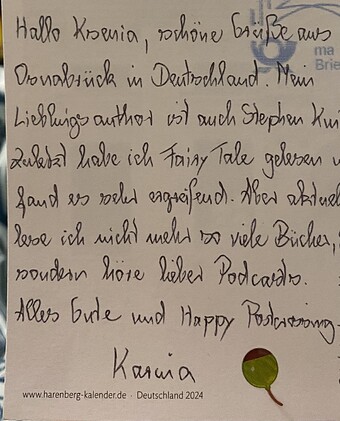 Hallo Ksenia, schöne Grüße aus
Osnabrück in Deutschland. Mein
Lieblingsauthor ist auch Stephen Kin
Zuletzt habe ich Fairy Tale gelesen u
fand es sehr ergreifend. Aber aktuel
lese ich nicht mehr so viele Bücher,
sondern höre lieber Podcasts.
Alles Gute und Happy Postcrossing
Karnia
www.harenberg-kalender.de · Deutschland 2024
ma
Brie